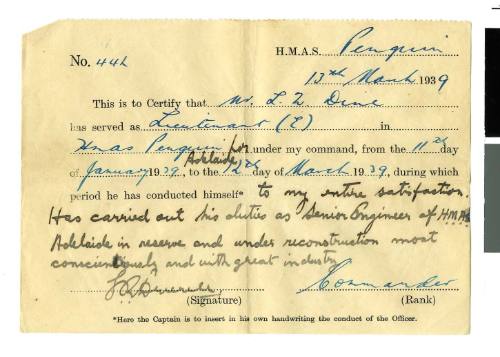 H.M.A.S. Penguin
No. 442
13th March 1939
This is to Certify that Mr. L. Z. Dine
has served as Lieutenant (E) in
Hmas Penguin for Adelaide under my command, from the 11th day
of January 1939, to the 12th day of March 1939, during which
period he has conducted himself* to my entire satisfaction.
Has carried out his duties as Senior Engineer of H.M.A.S
Adelaide in reserve and under reconstruction most
conscientiously and with great industry
Commander
(Signature) (Rank)
*Here the Captain is to insert in his own handwriting the conduct of the Officer.